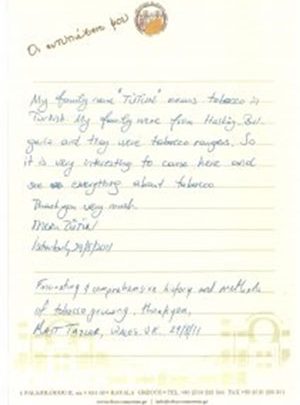 Οι εντυπώσεις μου
My family name "Tütün" means tobacco in
Turkish. My family were from Haskoy Bul
garia and they were tobacco
it is very interesting to came here and
see everything about tobacco
Thank you very much.
İstanbul,
Fascinating & comprehensive history and methods
of tobacco growing, thank you,
MATT TAYLOR, WALES UK. 29/8/11
KAVALA GREECE